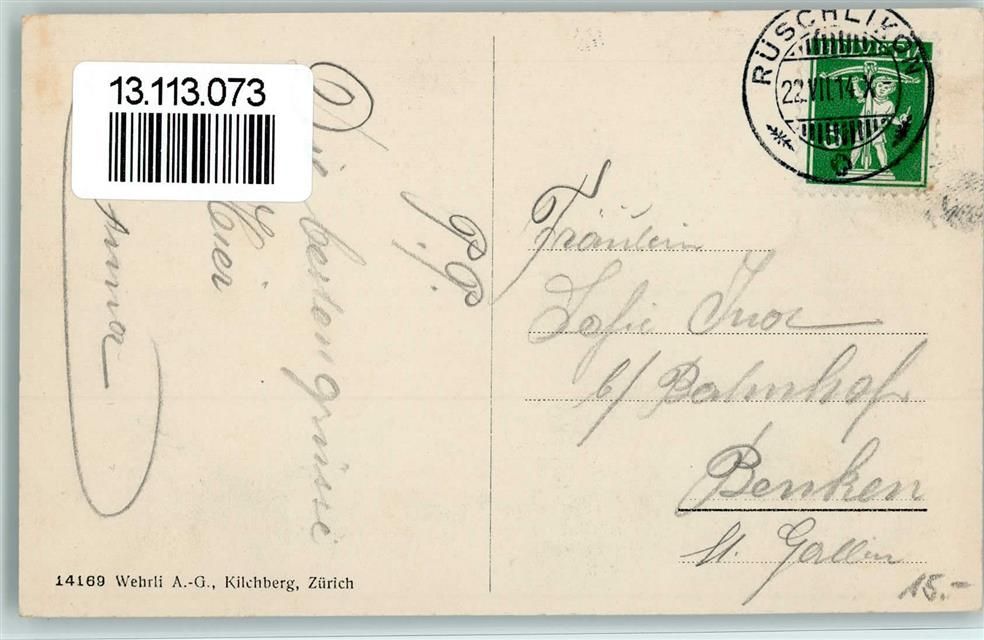 13.113.073
RÜSCHLIKON
22.VII.14.X
HELVETIA
P.P.
Die besten grüsse
Hier
Anna
Fräulein
Sofie
b/ Bahnhof
Benken
St. Gallen
14169 Wehrli A.-G., Kilchberg, Zürich
15.-